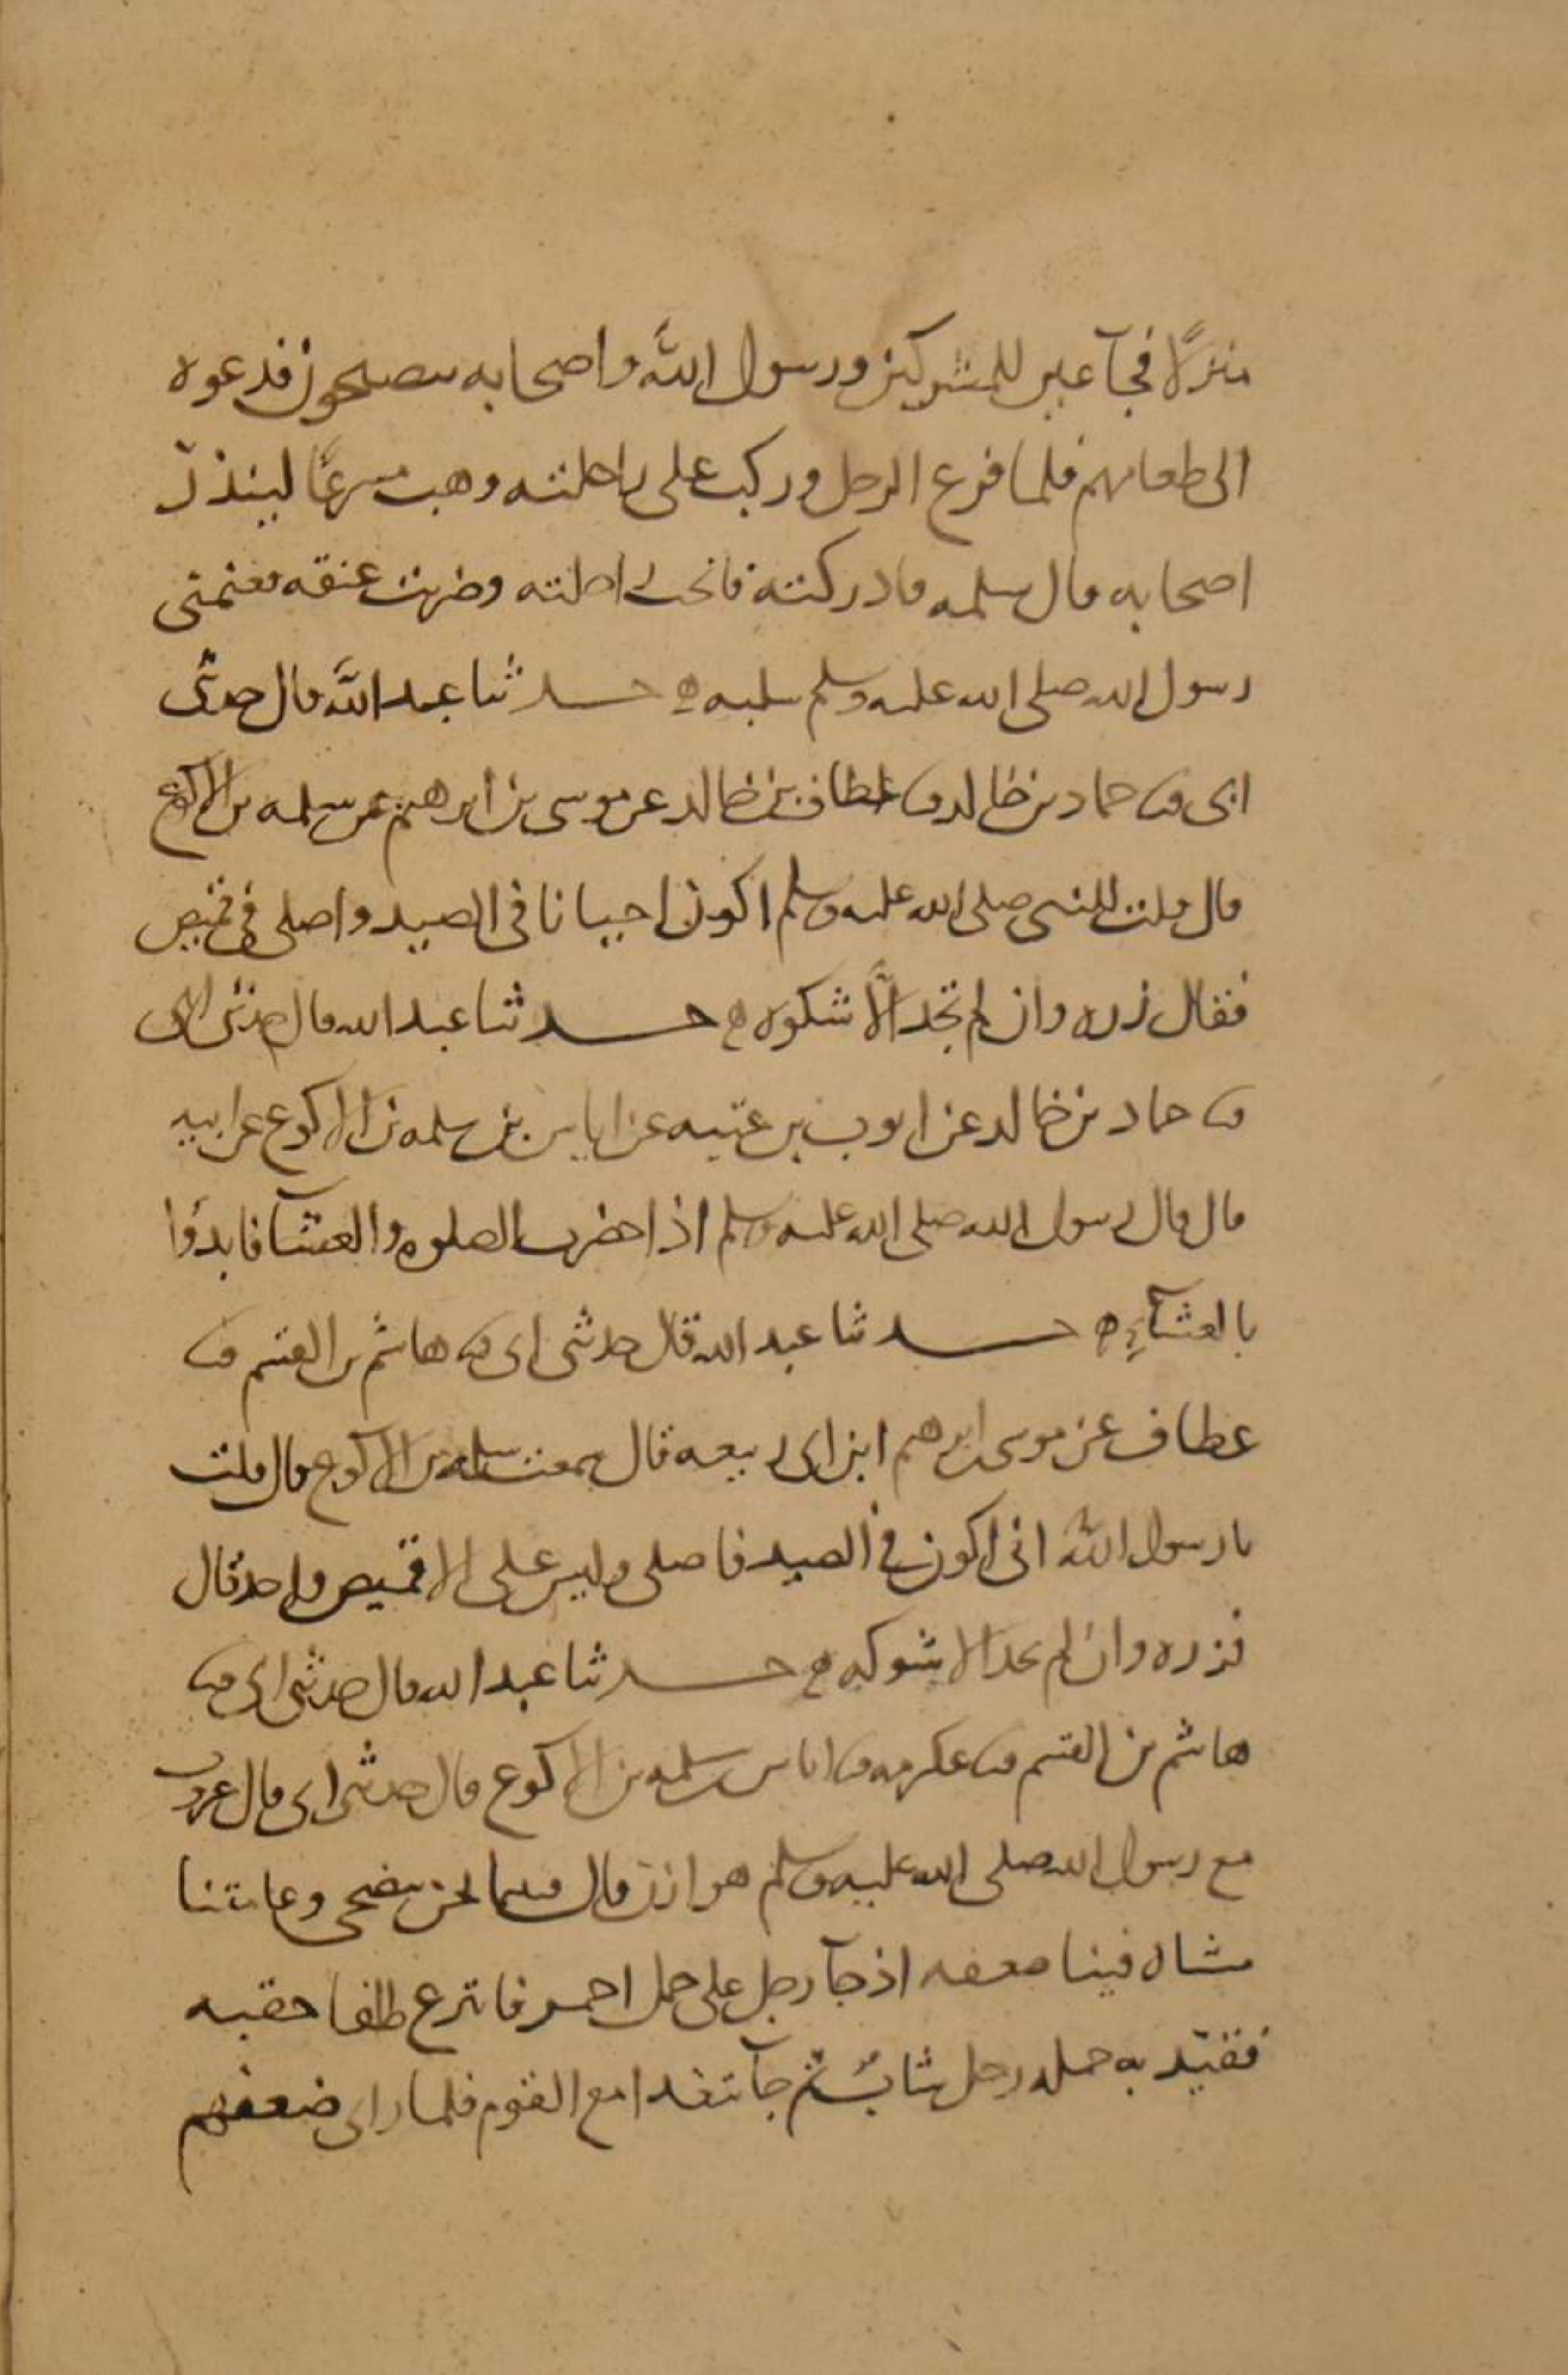 منزلًا فجآ عين للمشركين ورسول الله واصحابه يتصبحون فدعوه
الى طعامهم فلما فرغ الرجل وركب على راحلته وهب مسرعًا لينذر
اصحابه قال سلمه فادركته فانخت راحلته وضربت عنقه فغنمنى
رسول الله صلى الله عليه وسلم سلبه ه حدثنا عبد الله قال حدثنى
ابى ثنا حماد بن خالد ثنا عطاف بن خالد عن موسى بن ابرهيم عن سلمه بن الاكوع
قال قلت للنبى صلى الله عليه وسلم اكون احيانا فى الصيد واصلى فى قميص
فقال زره وان لم تجد الّا شكوه ه حدثنا عبد الله قال حدثنى ابى
ثنا حماد بن خالد عن ايوب بن عتبه عن اياس بن سلمه بن الاكوع عن ابيه
قال قال رسول الله صلى الله عليه وسلم اذا حضرت الصلوه والعشآ فابدؤا
بالعشآءِ ه حدثنا عبد الله قال حدثنى ابى ثنا هاشم بن القسم ثنا
عطاف عن موسى بن ابرهيم ابن ابى ربيعه قال سمعت سلمه بن الاكوع قال قلت
يا رسول الله انى اكون فى الصيد فاصلى وليس على الا قميص واحد قال
فزره وان لم تجد الا شوكه ه حدثنا عبد الله قال حدثنى ابى ثنا
هاشم بن القسم ثنا عكرمه ثنا اياس بن سلمه بن الاكوع قال حدثنى ابى قال غزوت
مع رسول الله صلى الله عليه وسلم هوازن قال فبينما نحن نتضحى وعامتنا
مشاه فينا ضعفه اذ جآ رجل على جمل احمر فانتزع طلقا من حقبه
فقيّد به جمله رجل شابٌ ثم جآ يتغدا مع القوم فلما راى ضعفهم